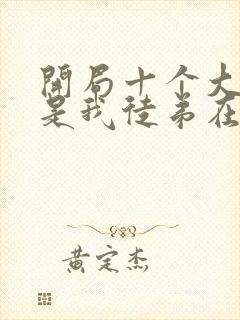 開局十个大
是我徒弟在
黄定杰